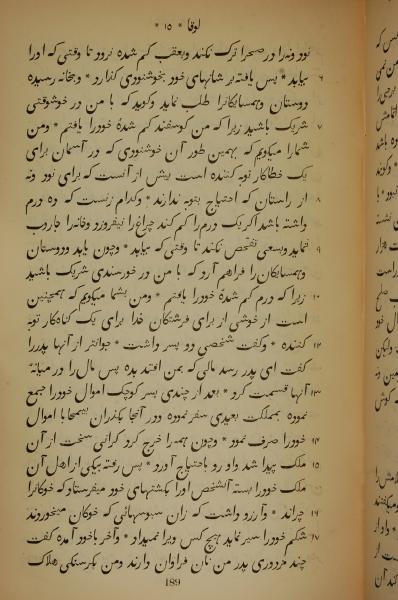 لوقا * ۱۵ *
نود ونه را در صحرا ترک نکند وبعقب کم شده نرود تا وقتی که اورا
۶ بیابد * پس یافته بر شانهای خود بخوشنودی کذارد * وبخانه رسیده
دوستان وهمسایکانرا طلب نماید وکوید که با من در خوشوقتی
۷ شریک باشید زیرا که من کوسفند کم شدهٔ خودرا یافتم * ومن
شمارا میکویم که بهمین طور آن خوشنودی که در آسمان برای
یک خطاکار توبه کننده است بیش از آنست که برای نود ونه
۸ از راستان که احتیاج بتوبه ندارند * وکدام زنست که ده درم
داشته باشد اکر یک درم را کم کند چراغ را نیفروزد وخانه‌را جاروب
۹ ننماید وبسعی تفحص نکند تا وقتی که بیابد * وچون یابد ودوستان
وهمسایکان را فراهم آرد که با من در خورسندی شریک باشید
۱۰ زیرا که درم کم شدهٔ خودرا یافتم * ومن بشما میکویم که همچنین
است از خوشی از برای فرشتکان خدا برای یک کناه‌کار توبه
۱۲ کننده * وکفت شخصی دو پسر داشت * جوانتر از آنها پدررا
کفت ای پدر رسد مالی که بمن افتد بده پس مال را در میانهٔ
۱۳ آنها قسمت کرد * بعد از چندی پسر کوچک اموال خودرا جمع
نموده بمملکت بعیدی سفر نموده ودر آنجا بکذران بیمحابا اموال
۱۴ خودرا صرف نمود * وچون همه‌را خرج کرد کرانی سخت از آن
۱۵ ملک پیدا شد واو رو باحتیاج آورد * پس رفته بیکی از اهل آن
ملک خودرا بسته آنشخص اورا بکشتهای خود میفرستاد که خوکانرا
۱۶ چراند * وآرزو داشت که زان سبوسهائی که خوکان میخوردند
۱۷ شکم خودرا سیر نماید هیچ کس ویرا نمیداد * وآخر باخود آمده کفت
چند مزدوری پدر من نان فراوان دارند ومن بکرسنکی هلاک
189